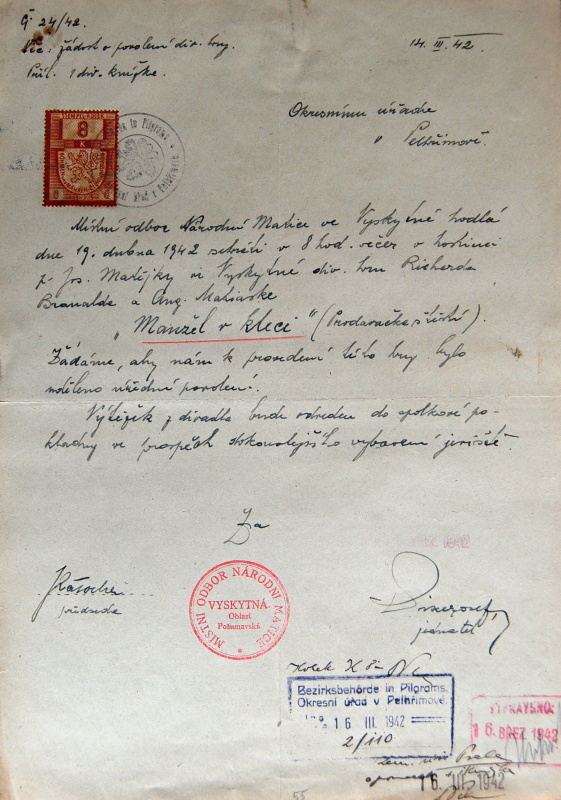 Č 24/42.
Věc: žádost o povolení div. hry.
Příl. 1 div. knížka.
14. III. 42.
Okresnímu úřadu
v Pelhřimově.
STEMPEL KOLEK
8
K
Místní odbor Národní Matice ve Vyskytné hodlá
dne 19. dubna 1942 sehráti v 8 hod. večer v hostinci
p. Jos. Matějky ve Vyskytné div. hru Richarda
Branalda a Ang. Matiaske
„Manžel v kleci" (Prodavačka štěstí).
Žádáme, aby nám k provedení této hry bylo
uděleno úřední povolení.
Výtěžek z divadla bude odveden do spolkové po-
kladny ve prospěch dokonalejšího vybavení jeviště.
Za
předseda
jednatel
MÍSTNÍ ODBOR NÁRODNÍ MATICE
VYSKYTNÁ
Oblast
Pošumavská
Kolek K 8-
Bezirksbehörde in Pilgrams.
Okresní úřad v Pelhřimově.
16 III. 1942
2/110
VYPRAVENO:
16. BŘEZ 1942
16. III. 1942
55